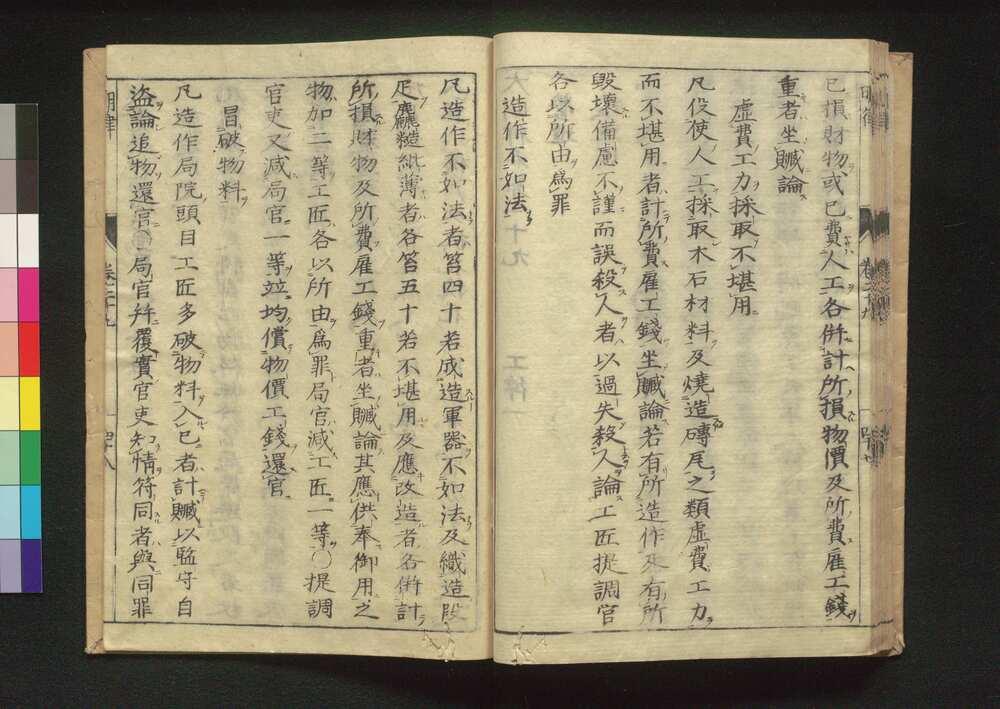 已損財物或已費人工各併計所損物價及所費雇工錢
重者坐贓論
虛費工力採取不堪用
凡役使人工採取木石材料及燒造磚瓦之類虛費工力
而不堪用者計所費雇工錢坐贓論若有所造作及有所
毀壞備慮不謹而誤殺人者以過失殺人論工匠提調官
各以所由爲罪
造作不如法
凡造作不如法者笞四十若成造軍器不如法及織造段
疋麤糙紕薄者各笞五十若不堪用及應改造者各併計
所損財物及所費雇工錢重者坐贓論其應供奉御用之
物加二等工匠各以所由爲罪局官減工匠一等〇提調
官吏又減局官一等竝均償物價工錢還官
冒破物料
凡造作局院頭目工匠多破物料入己者計贓以監守自
盜論追物還官〇局官幷覆實官吏知情符同者與同罪
明律
卷二十九